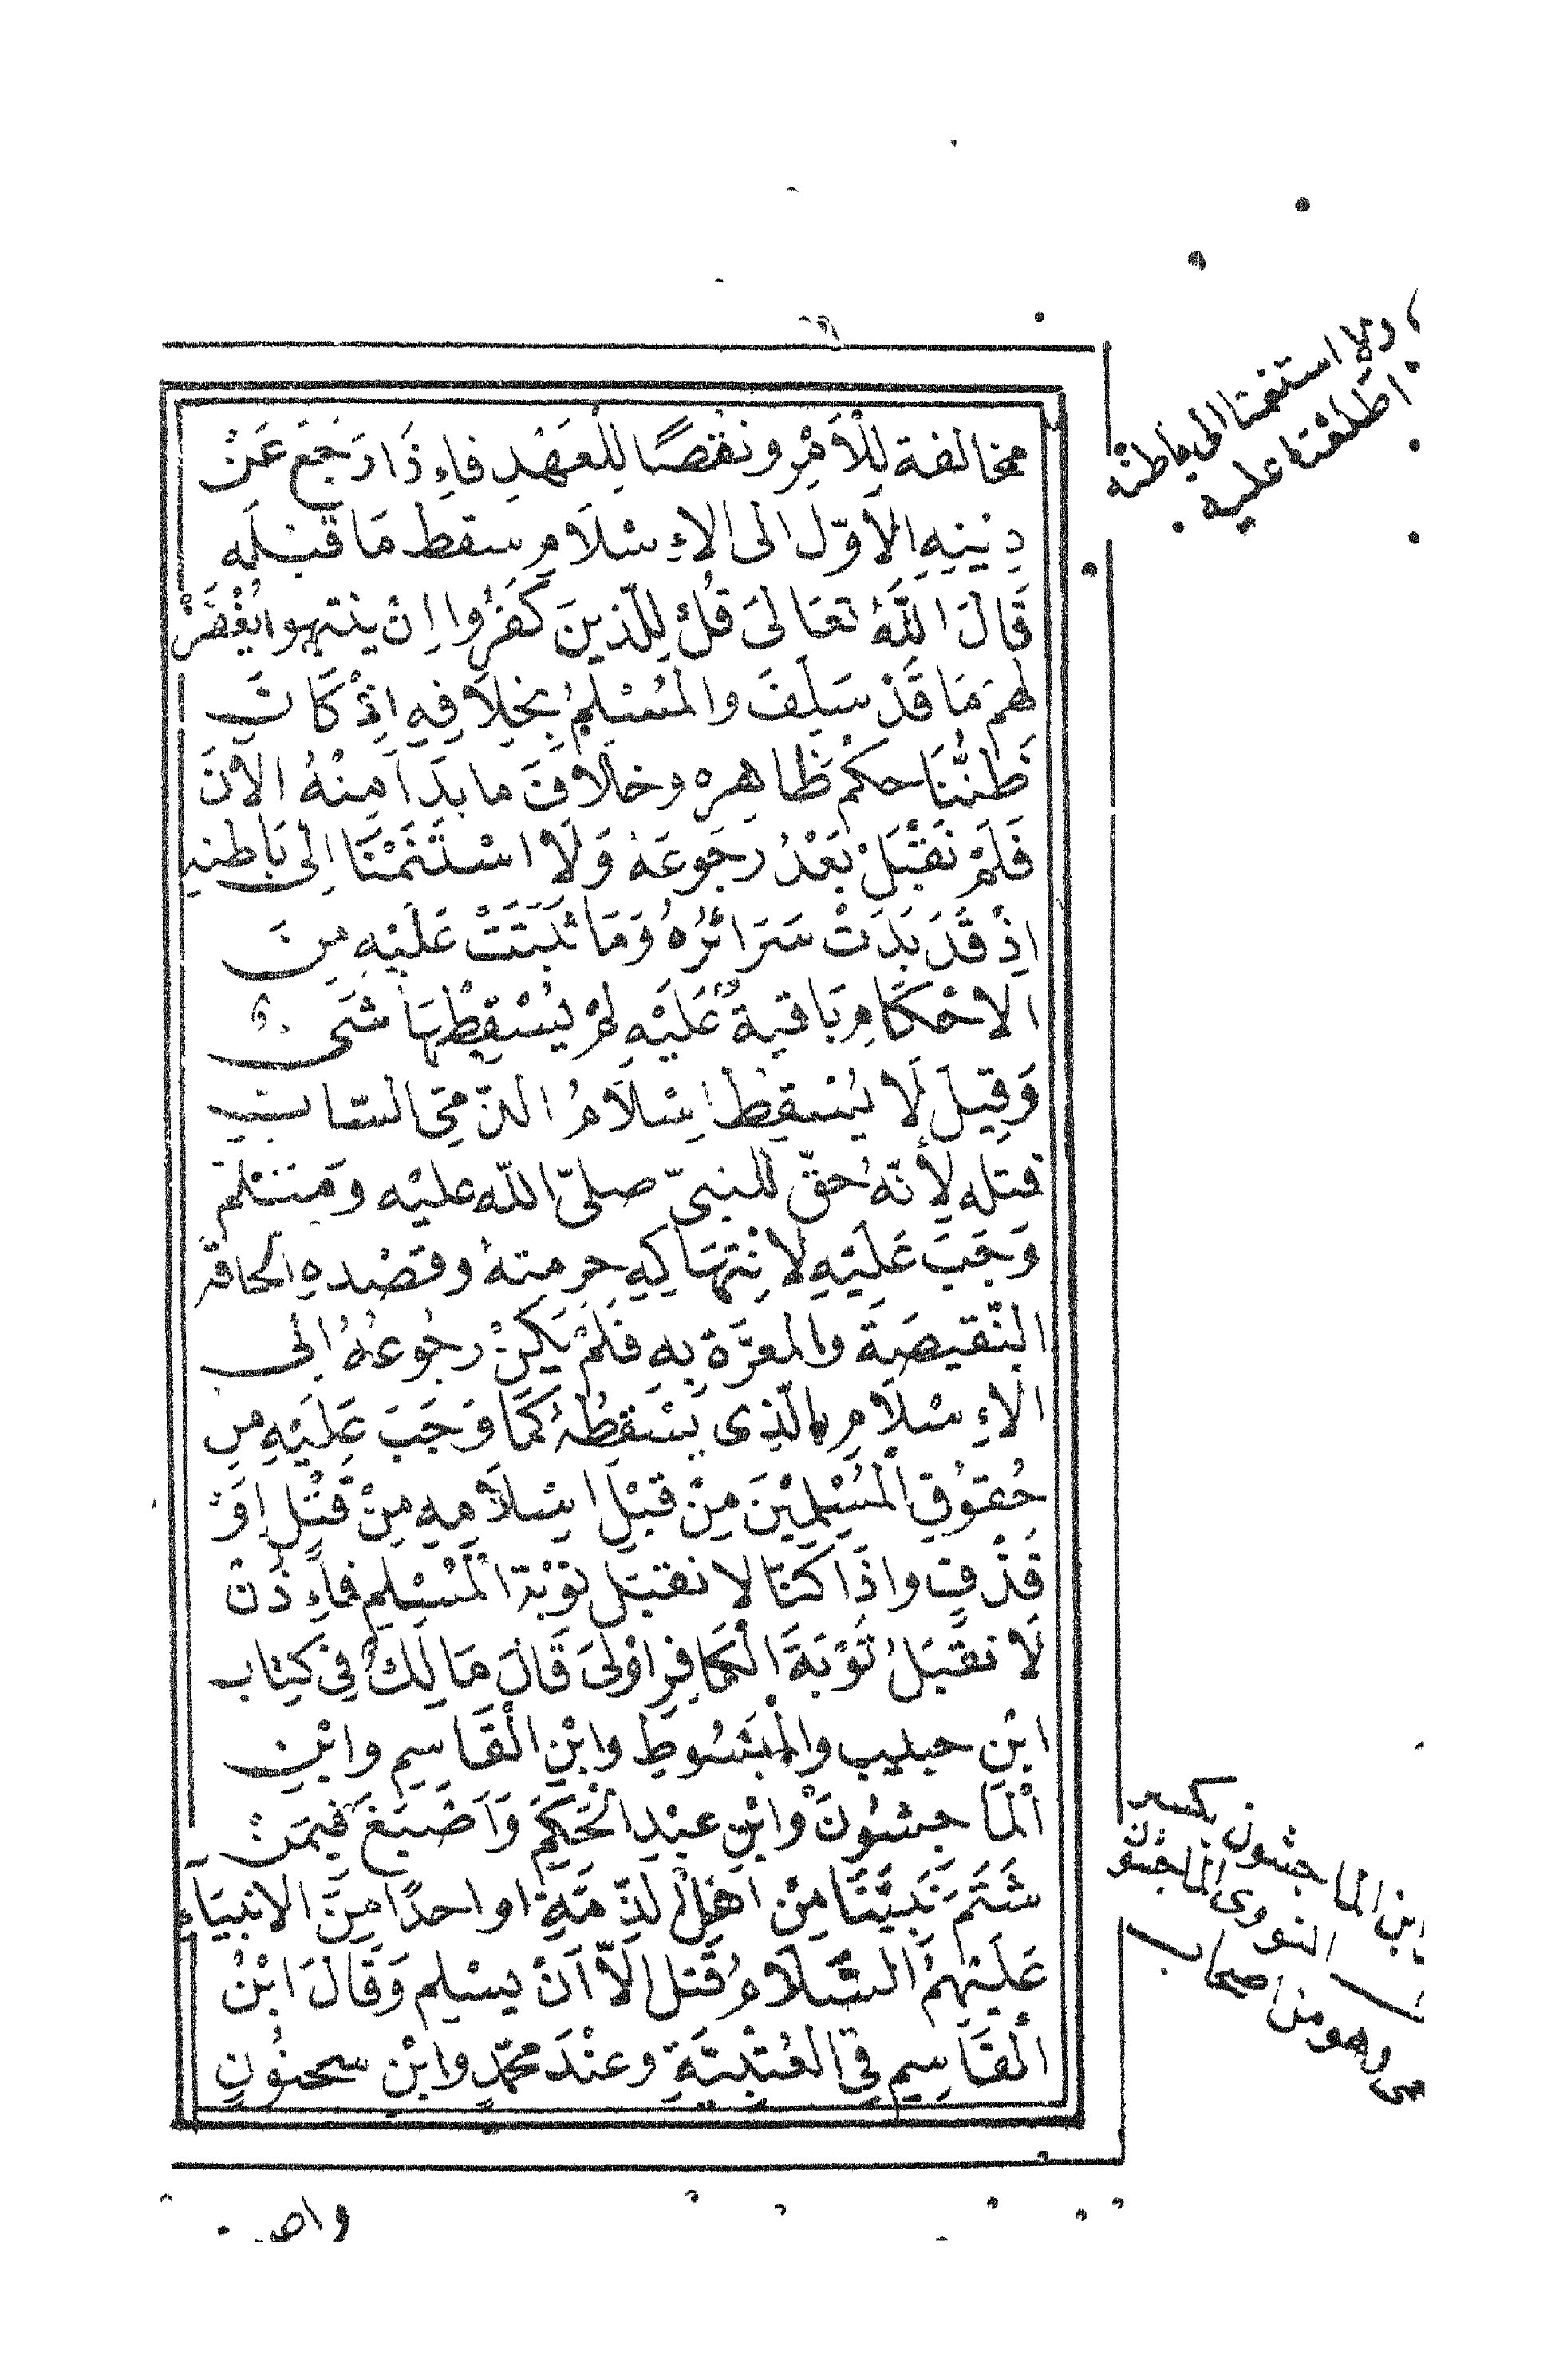 مخالفة لِلْاَمْرِ ونقْصًا لِلْعَهْدِ فاءِذَا رَجَعَ عَنْ
دِيْنِهِ الاَوّل الى الاءِسْلَامِ سقط مَا قَبْلَه
قَالَ اللّٰهُ تعَالىَ قُلْ لِلّذينَ كَفَرُوا اِنْ ينتهوا يُغْفَرْ
لهمْ مَا قَدْ سَلَفَ والمُسْلِمُ بخِلَافِهِ اِذْ كَانَ
ظَنُّنَا حكمْ ظاهِره وخلَافَ ما بدَا مِنْهُ الآنَ
فَلَمْ نَقْبَلْ بَعْدُ رجَوعَهُ وَلَا اسْتَنَمْنَا اِلى بَاطنهِ
اِذْ قَدَ بَدَتْ سَرَائرُهُ وَمَا ثبَتَتْ عَلَيْهِ مِنَ
الاحْكَامِ بَاقيةٌ عَلَيْهِ لمْ يُسْقِطْهَا شَىء
وَقِيلَ لَا يُسْقِطُ اِسْلَامُ الذّمّى السّابّ
قتله لِأنّهُ حقّ للنبىّ صلىّ اللّه عليْه وَسَلّمَ
وَجَبَ عَلَيْهِ لانْتِهَاكِهِ حرمتهُ وقصْدهِ الحاقَه
النّقيصَةَ والمعَرَّة بهِ فَلَمْ يَكنْ رجُوعُهُ الى
الاءِسْلَامِ بالّذِى يُسْقِطهُ كَمَا وَجَبَ عَلَيْهِ مِن
حُقوُقِ الْمُسْلِمِيْنَ مِنْ قبْلِ اسْلَامِهِ مِنْ قَتْلٍ اَوْ
قَذْفٍ واذَا كنّا لا نقبَل توْبة الْمُسْلِمِ فاءِذْنْ
لَا نقْبَلُ تَوْبَةَ الْكَافِرِ اوْلىَ قَالَ مَالِكٌ فِى كتاب
ابْنِ حبيب والْمبْسُوطِ وابْنِ الْقَاسِمِ وابْنِ
الْمَاجشُونَ وابْنِ عبْدِ الْحَكَمِ وَاَصْبَغَ فيمَنْ
شَتَمَ نَبيَّنَا مِنْ اَهْلِ الذّمَّةِ او احدًا مِنَ الانبيَآءِ
عَلَيْهِمُ السَّلَامُ قُتل اِلّا اَنْ يسْلِم وَقَالَ ابْنُ
الْقَاسِمِ فِى العُتْبيَّةِ وعنْدَ محمّدٍ وابْنِ سحنُونٍ
ولا استنمنا الى باطنه
اطلعنا عليه
ابن الماجشون بكسر
النووى الماجشون
وهو من اصحاب
واص